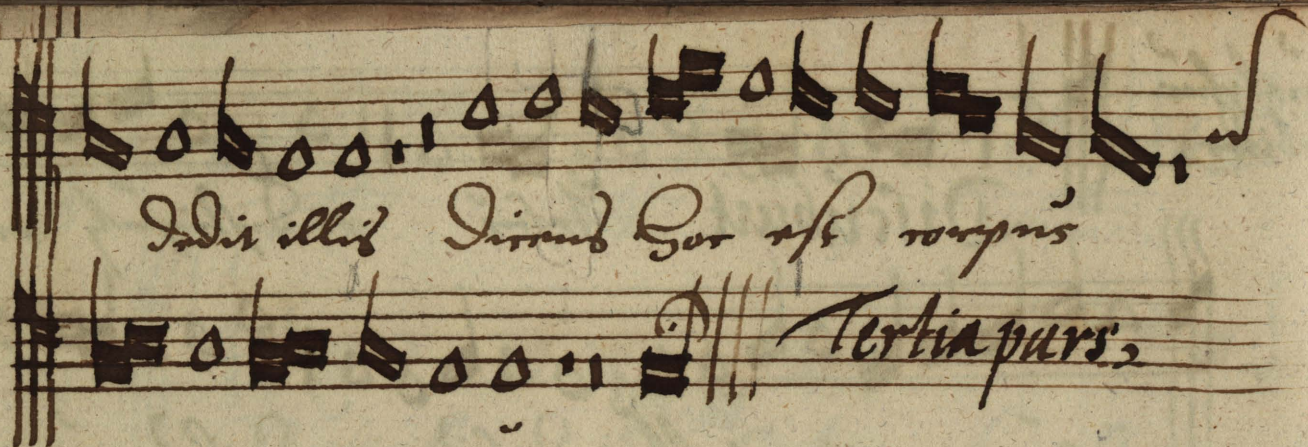 dedit illis dicens hoc est corpus
Tertia pars.